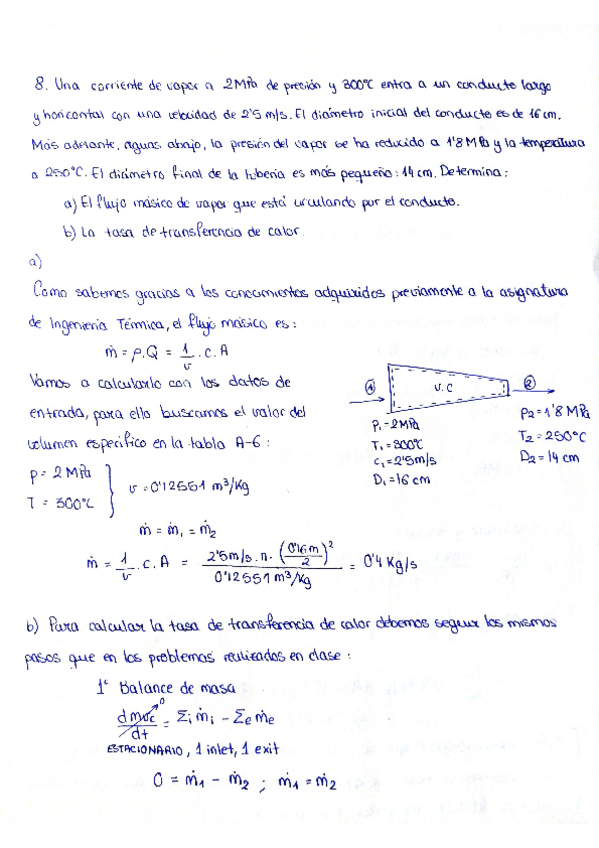 8. Una corriente de vapor a 2MPa de presión y 300°C entra a un conducto largo
y horizontal con una velocidad de 2'5 m/s. El diámetro inicial del conducto es de 16 cm.
Más adelante, aguas abajo, la presión del vapor se ha reducido a 1'8 MPa y la temperatura
a 250°C. El diámetro final de la tubería es más pequeño: 14 cm. Determina:
a) El flujo másico de vapor que está circulando por el conducto.
b) La tasa de transferencia de calor.
a)
Como sabemos gracias a los conocimientos adquiridos previamente a la asignatura
de Ingeniería Térmica, el flujo másico es:
ṁ = ρ.Q = 1/v . c . A
Vamos a calcularlo con los datos de
entrada, para ello buscamos el valor del
volumen específico en la tabla A-6:
p = 2 MPa
T = 300°C
v = 0'12551 m³/kg
① V.C ②
P₁ = 2MPa
T₁ = 300°C
C₁ = 2'5m/s
D₁ = 16 cm
P₂ = 1'8 MPa
T₂ = 250°C
D₂ = 14 cm
ṁ = ṁ₁ = ṁ₂
ṁ = 1/v . c . A = 2'5m/s . π . (0'16m/2)² / 0'12551 m³/kg = 0'4 Kg/s
b) Para calcular la tasa de transferencia de calor debemos seguir los mismos
pasos que en los problemas realizados en clase:
1º Balance de masa
dmvc/dt = Σi ṁi - Σe ṁe
0
ESTACIONARIO, 1 inlet, 1 exit
0 = ṁ₁ - ṁ₂ ; ṁ₁ = ṁ₂